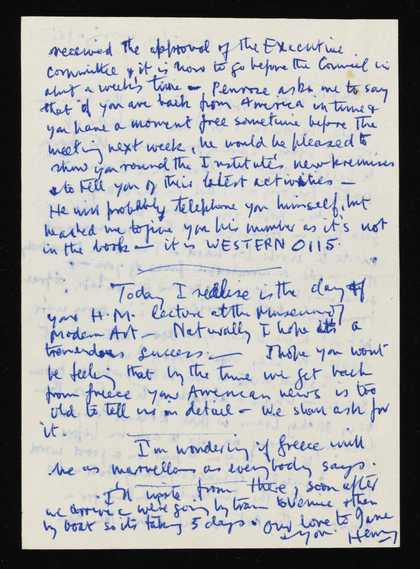 received the approval of the Executive
committee & it is now to go before the Council in
about a week's time — Penrose asks me to say
that if you are back from America in time &
you have a moment free sometime before the
meeting next week, he would be pleased to
show you round the Institute's new premises
& to tell you of their latest activities —
He will probably telephone you himself, but
he asked me to give you his number as it's not
in the book — it is WESTERN 0115.
Today I realise is the day of
your H.M. lecture at the Museum of
Modern Art — Naturally I hope it's a
tremendous success. — I hope you wont
be feeling that by the time we get back
from Greece your American news is too
old to tell us in detail — We shall ask for
it.
I'm wondering if Greece will
be as marvellous as everybody says.
I'll write from there, soon after
we arrive & we're going by train to Venice & then
by boat so its taking 5 days. Our love to Jane
& you. Henry